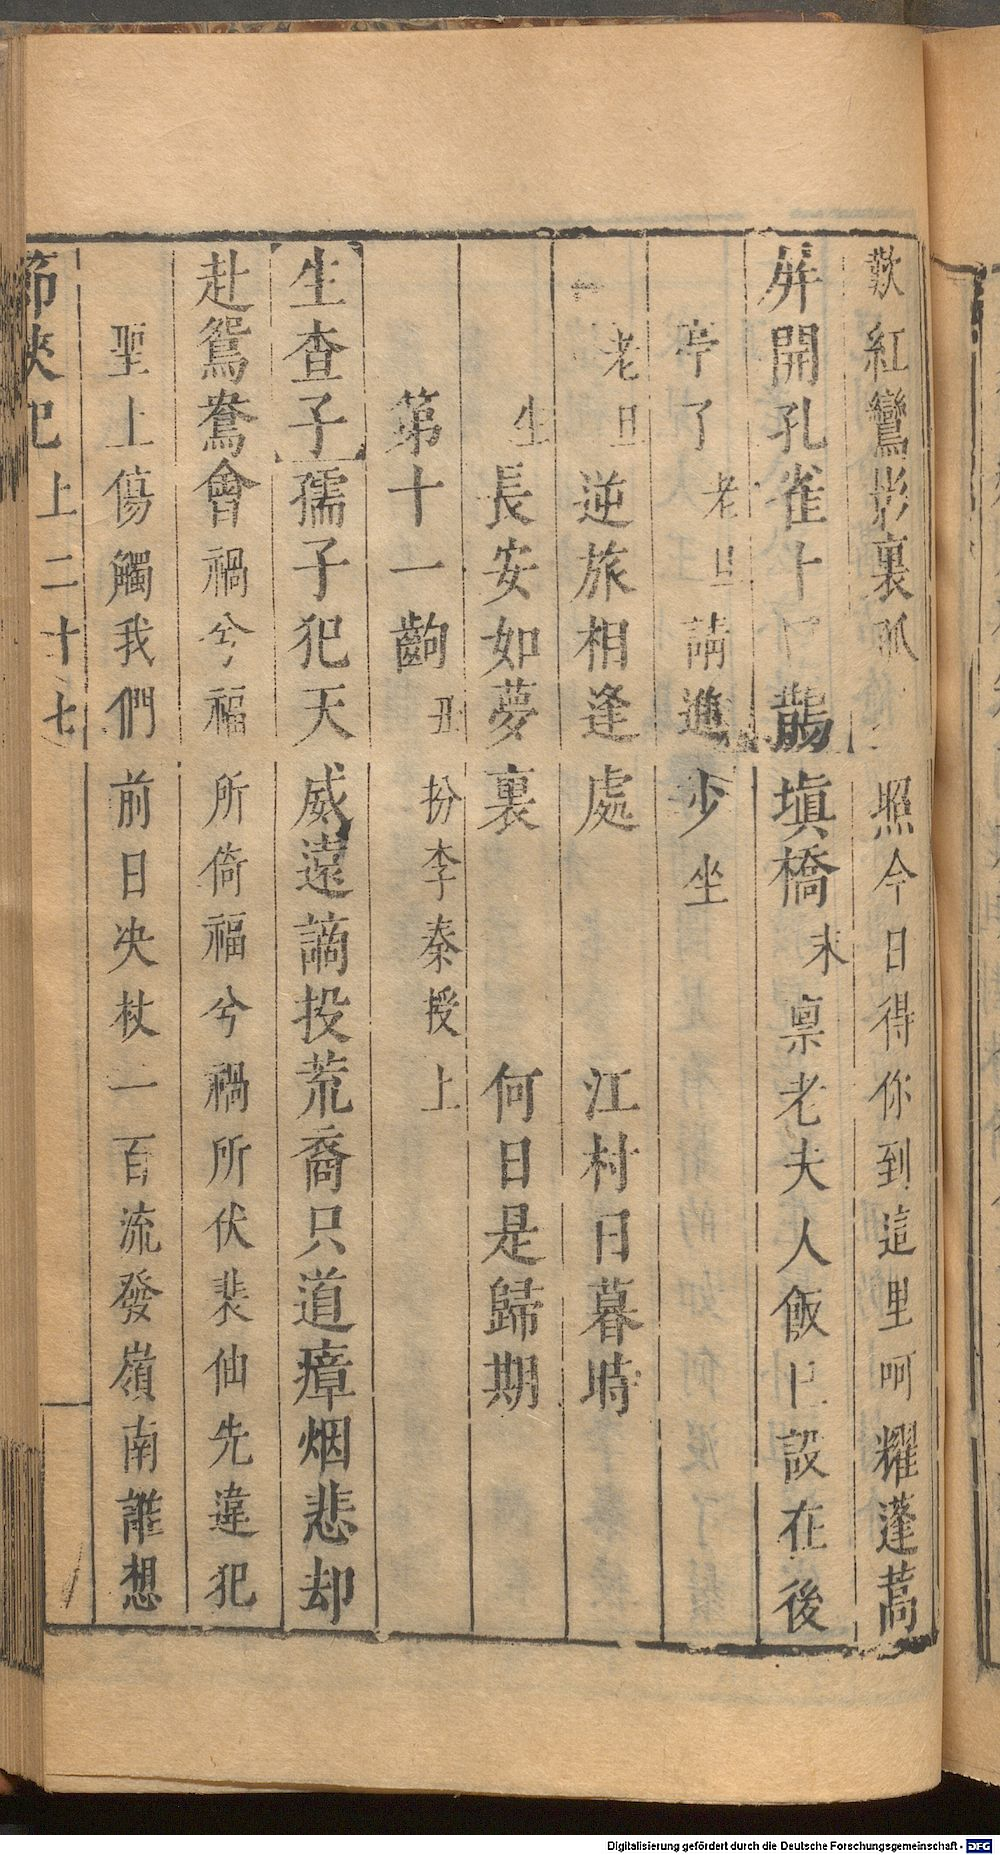 歎紅鸞影裏孤照今日得你到這里呵耀蓬蒿
屏開孔雀十鵲塡橋末稟老夫人飯已設在後
亭了老旦請進少坐
老旦逆旅相逢處 江村日暮時
生長安如夢裏 何日是歸期
第十一齣丑扮李秦授上
生查子孺子犯天威遠謫投荒裔只道瘴烟悲却
赴鴛鴦會禍兮福所倚福兮禍所伏裴仙先違犯
聖上傷觸我們前日央杖一百流發嶺南誰想
節俠記上二十七
Digitalisierung gefördert durch die Deutsche Forschungsgemeinschaft - DFG